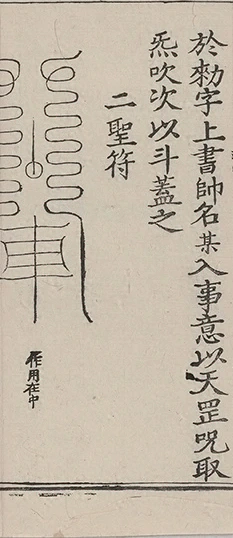 於勑字上書帥名某入事意以天罡咒取
炁吹次以斗蓋之
二聖符
作用在中